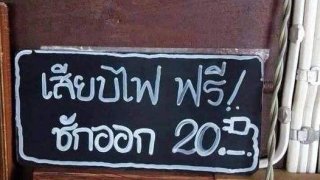 เสียบไฟ ฟรี!
ชักออก 20.-